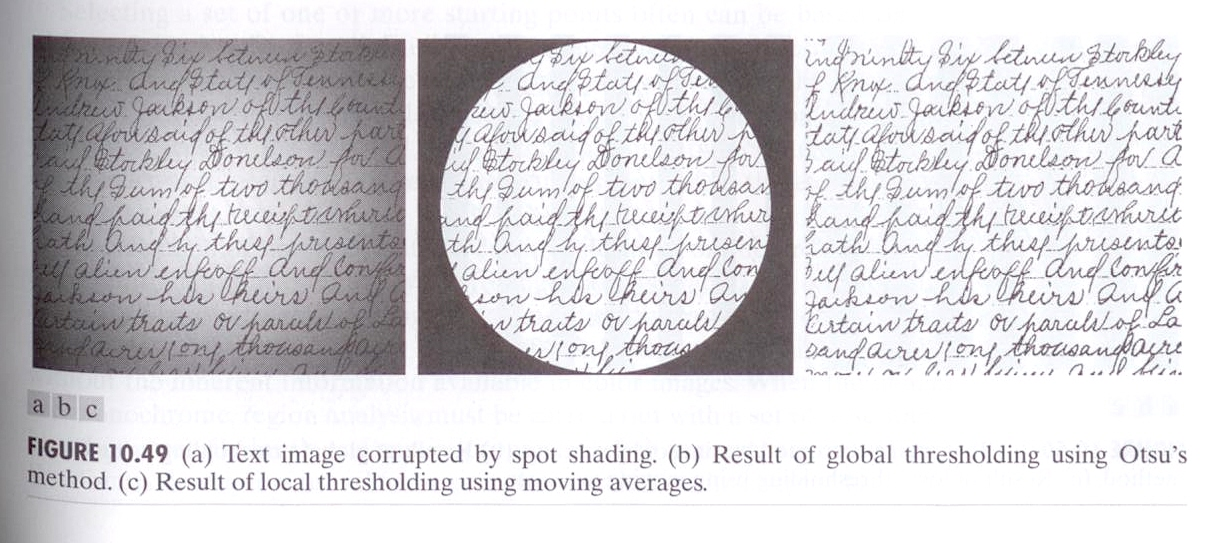 Selecting a set of one or more starting points often can be
Six between Stockley
Knox and State of Tennessee
Andrew Jackson of the County
aforesaid of the other part
Stockley Donelson for a
of the Sum of two thousand
hand paid the receipt
hath and by these presents
alien enfeoff and Confir
Jackson his heirs and a
Certain traits or parcels of La
sand acres long thousand acre
Six between
and State of
Jackson of the
aforesaid of the other
Stockley Donelson for
the Sum of two thousan
and paid the receipt
and by these presen
alien enfeoff and Con
his heirs an
traits or parcels
long thous
and ninety Six between Stockley
of Knox and State of Tennessey
Andrew Jackson of the Count
tate aforesaid of the other part
said Stockley Donelson for a
of the Sum of two thousand
hand paid the receipt where
hath and by these presents
alien enfeoff and Confir
Jackson his heirs and a
Certain traits or parcels of La
sand acres long thousand acre
the inherent information available in color images. When
region analysis must be carried out with a set
a b c
FIGURE 10.49 (a) Text image corrupted by spot shading. (b) Result of global thresholding using Otsu's
method. (c) Result of local thresholding using moving averages.